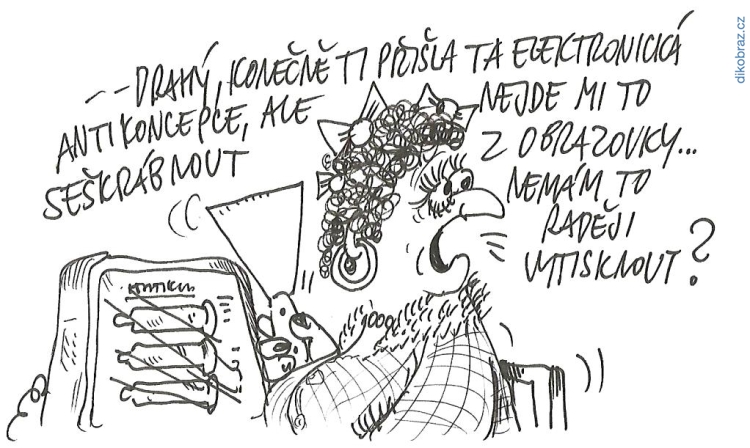 -- DRAHÝ, KONEČNĚ TI PŘIŠLA TA ELEKTRONICKÁ
ANTIKONCEPCE, ALE
SEŠKRÁBNOUT
NEJDE MI TO
Z OBRAZOVKY...
NEMÁM TO
RADĚJI
VYTISKNOUT?
dikobraz.cz